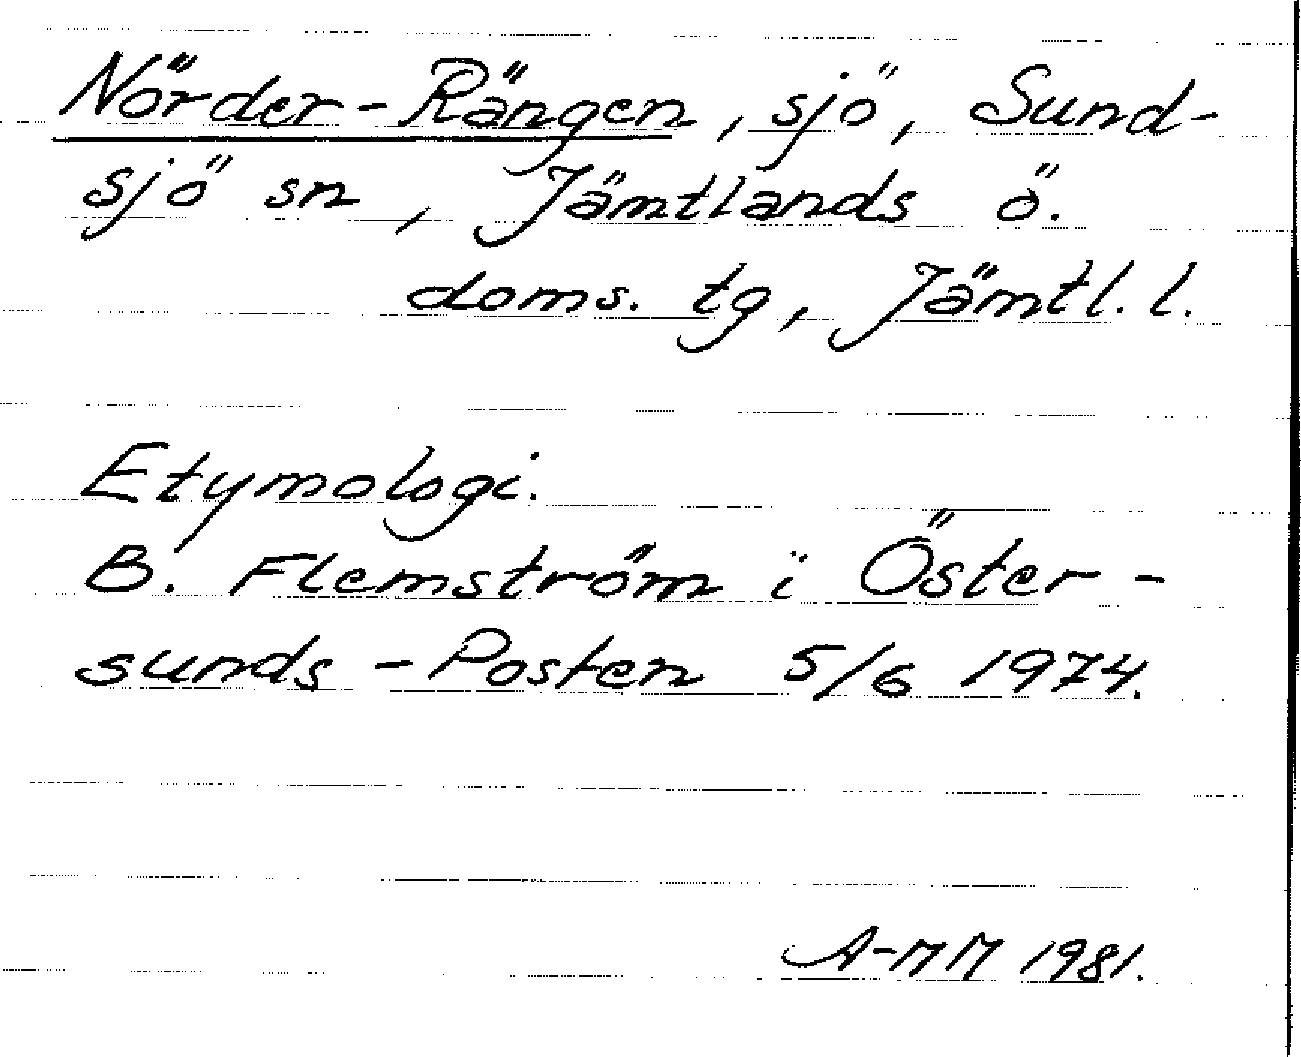 Nörder-Rängen, sjö, Sund-
sjö sn, Jämtlands ö.
doms. tg, Jämtl. l.
Etymologi.
B. Flemström i Öster-
sunds-Posten 5/6 1974.
A-MM 1981.